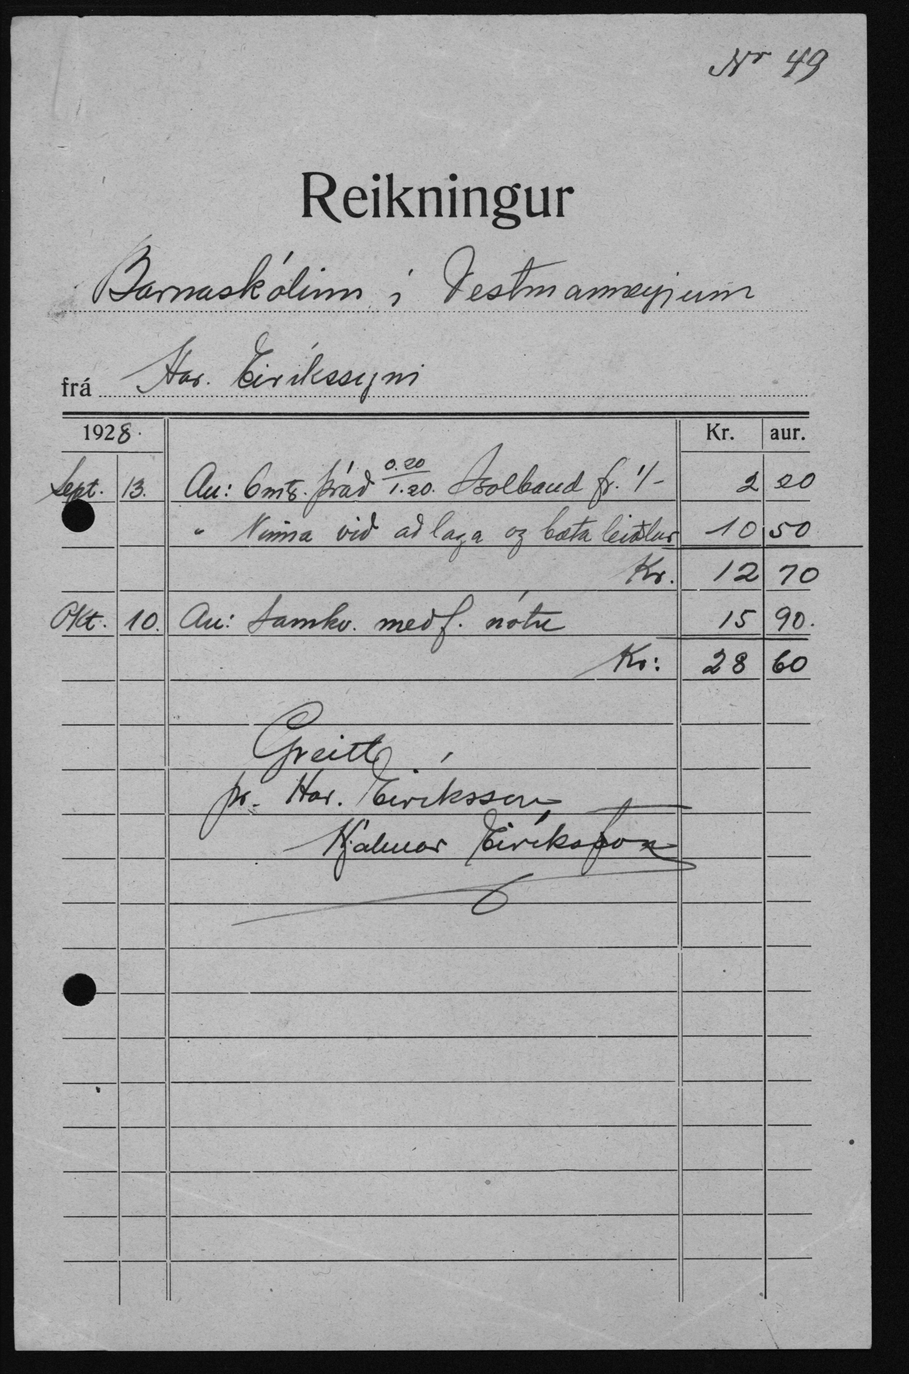 Nr 49
Reikningur
Barnaskólinn í Vestmannaeyjum
frá Har. Eiríkssyni
1928. Kr. aur.
Sept. 13. Au: 6 mtr. þráð 0.20/1.20. Isolband fr. 1/- 2 20
" Vinna við að laga og bæta leiðslur 10 50
Kr. 12 70
Okt. 10. Au: Samkv. meðf. nótu 15 90.
Kr: 28 60
Greitt
pr. Har. Eiríksson
Hjálmar Eiríksson